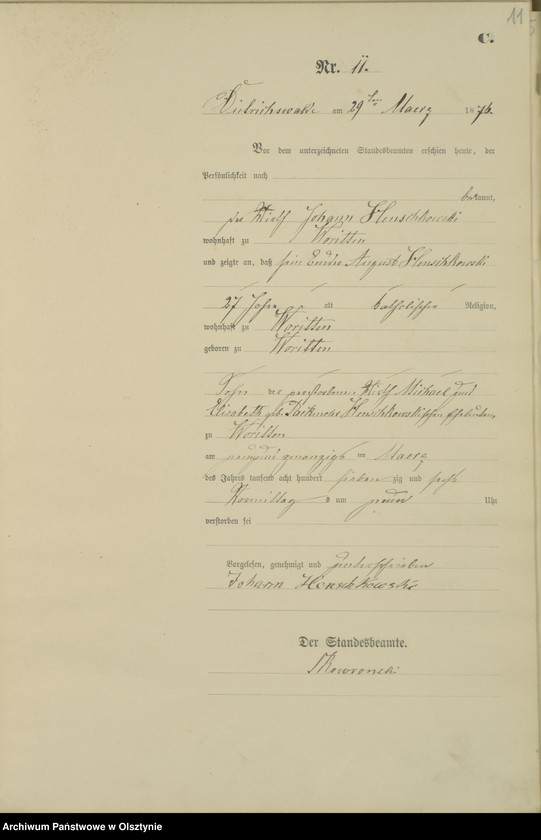 11
C.
Nr. 11.
Dietrichswalde am 29ten Maerz 1876.
Vor dem unterzeichneten Standesbeamten erschien heute, der
Persönlichkeit nach
bekannt,
der Wirth Johann Henschkowski
wohnhaft zu Woritten
und zeigte an, daß sein Bruder August Henschkowski
27 Jahre alt katholischer Religion,
wohnhaft zu Woritten
geboren zu Woritten
Sohn der verstorbenen Wirth Michael und
Elisabeth geb. Henschkowskischen Eheleuten,
zu Woritten
am neunundzwanzigsten Maerz
des Jahrs tausend acht hundert sieben zig und sechs
Vormittags um neun Uhr
verstorben sei
Vorgelesen, genehmigt und unterschrieben
Johann Henschkowski
Der Standesbeamte.
Skowronski
Archiwum Państwowe w Olsztynie